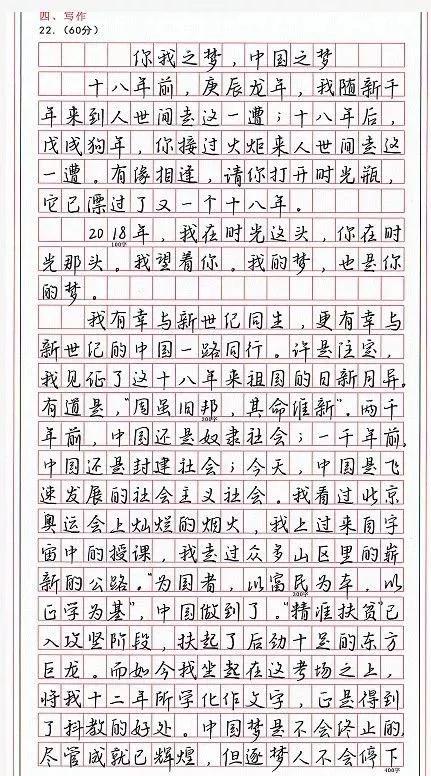 四、写作
22.（60分）
你我之梦，中国之梦
十八年前，庚辰龙年，我随新千
年来到人世间走这一遭；十八年后，
戊戌狗年，你接过火炬来人世间走这
一遭。有缘相逢，请你打开时光瓶，
它已漂过了又一个十八年。
2018年，我在时光这头，你在时
100字
光那头。我望着你。我的梦，也是你
的梦。
我有幸与新世纪同生，更有幸与
新世纪的中国一路同行。许是注定，
我见证了这十八年来祖国的日新月异。
有道是，“周虽旧邦，其命维新”。两千
200字
年前，中国还是奴隶社会；一千年前，
中国还是封建社会；今天，中国是飞
速发展的社会主义社会。我看过北京
奥运会上灿烂的烟火，我上过来自宇
宙中的授课，我走过众多山区里的崭
新的公路。“为国者，以富民为车，以
300字
正学为基”，中国做到了。“精准扶贫”已
入攻坚阶段，扶起了后劲十足的东方
巨龙。而如今我坐起在这考场之上，
将我十二年所学化作文字，正是得到
了科教的好处。中国梦是不会终止的，
尽管成就已辉煌，但逐梦人不会停下
400字